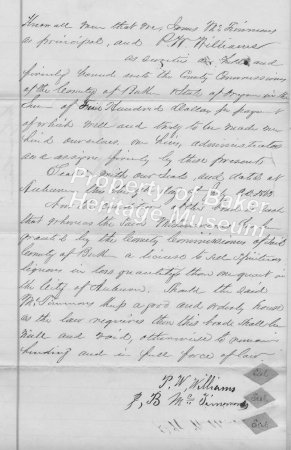 Know all men that we, James McTimmons
as principal, and P. W. Williams
as sureties are held and
firmly bound unto the County Commissioners
of the County of Baker State of Oregon in the
Sum of Five Hundred Dollars for payment
of which well and truly to be made we
bind ourselves, our heirs, administrators
and assigns firmly by these presents
Sealed with our Seals and dated at
Auburn this day of July A.D. 1863
that whereas the said
granted by the County Commissioners of Said
County of Baker a license to sell Spiritous
liquors in less quantity than one quart in
the City of Auburn. Should the said
McTimmons keep a good and orderly house
as the law requires then this bond shall be
Null and void, otherwise to remain
binding and in full force of law
P. W. Williams
J. B McTimmons
Property of Baker
Heritage Museum